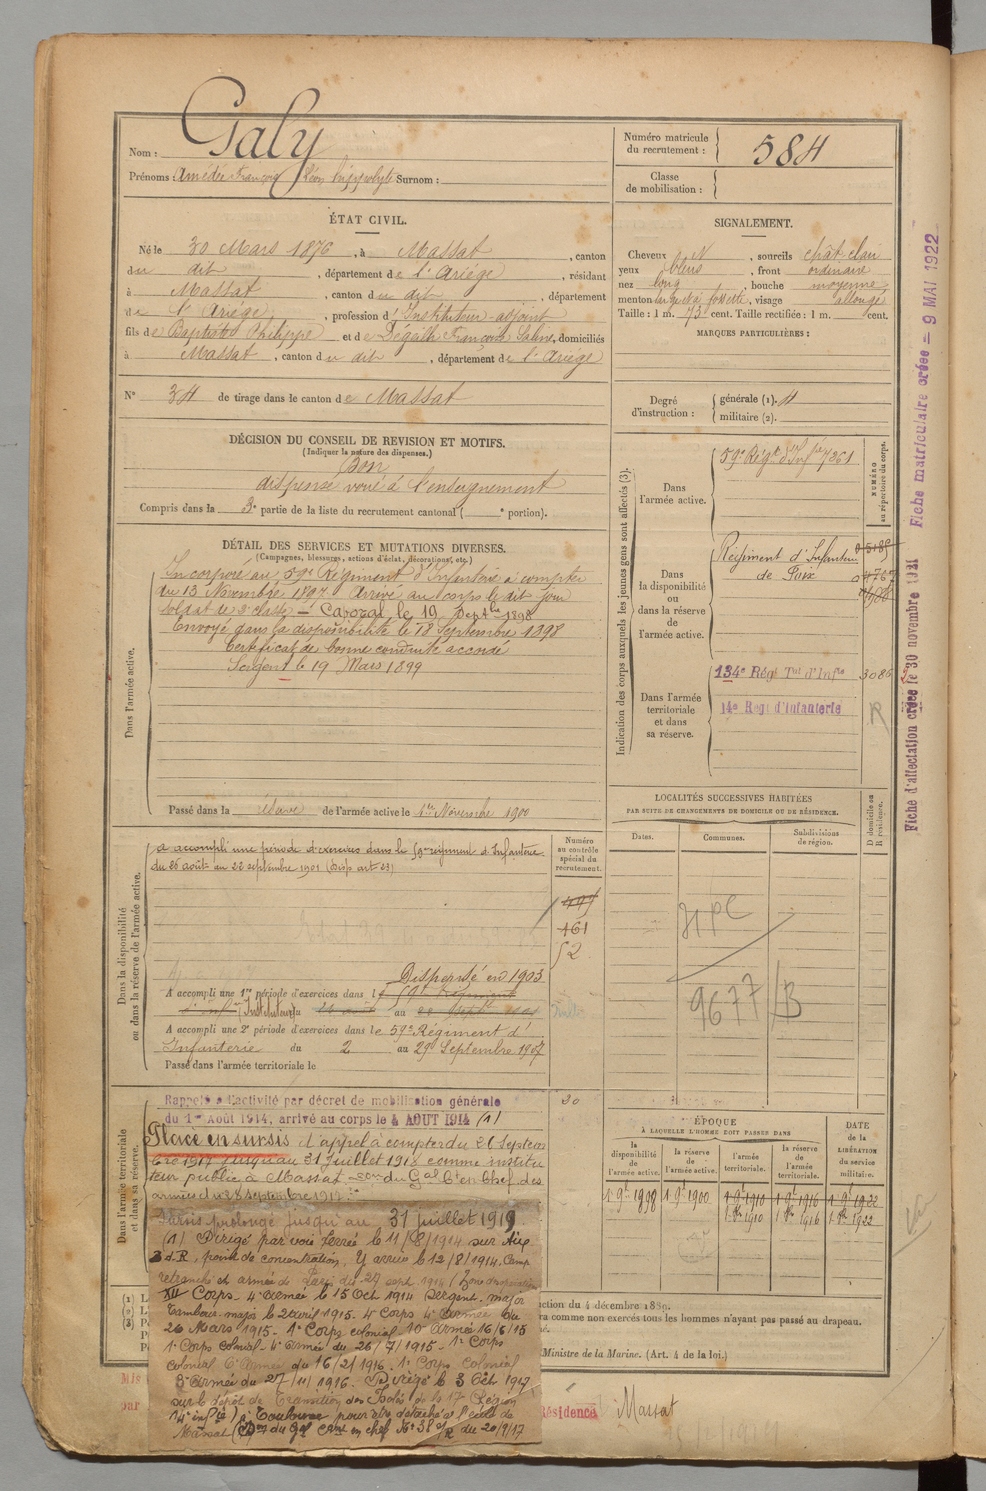 Nom : Galy
Prénoms : Amédée François Léon hippolyte Surnom :
Numéro matricule
du recrutement : 584
Classe
de mobilisation :
ÉTAT CIVIL.
Né le 30 Mars 1876, à Massat, canton
du dit, département de l'Ariége, résidant
à Massat, canton du dit, département
de l'Ariége, profession d'Instituteur adjoint
fils de Baptiste Philippe et de Dégalh Françoise Sabine, domiciliés
à Massat, canton du dit, département de l'Ariége
N° 34 de tirage dans le canton de Massat
SIGNALEMENT.
Cheveux N, sourcils chât. clair
yeux bleus, front ordinaire
nez long, bouche moyenne,
menton à fossette, visage allongé
Taille : 1 m. 73 cent. Taille rectifiée : 1 m. cent.
MARQUES PARTICULIÈRES :
Degré
d'instruction : générale (1). 4
militaire (2).
DÉCISION DU CONSEIL DE REVISION ET MOTIFS.
(Indiquer la nature des dispenses.)
Bon
dispensé voué à l'enseignement
Compris dans la 3e partie de la liste du recrutement cantonal ( e portion).
DÉTAIL DES SERVICES ET MUTATIONS DIVERSES.
(Campagnes, blessures, actions d'éclat, décorations, etc.)
Dans l'armée active.
Incorporé au 59e Régiment d'Infanterie à compter
du 13 Novembre 1897. Arrivé au corps le dit jour
soldat de 2e classe – Caporal le 19 Septbre 1898
Envoyé dans la disponibilité le 18 Septembre 1898
Certificat de bonne conduite accordé
Sergent le 19 Mars 1899
Passé dans la réserve de l'armée active le 1er Novembre 1900
Indication des corps auxquels les jeunes gens sont affectés (3).
NUMÉRO
au répertoire du corps.
Dans
l'armée active.
59e Régt d'Infie 7261
Dans
la disponibilité
ou
dans la réserve
de
l'armée active.
Régiment d'Infanterie
de Foix
Dans l'armée
territoriale
et dans
sa réserve.
134e Régt Tal d'Infie 3086
14e Régt d'Infanterie R
Fiche d'affectation créée le 30 novembre 1921
Fiche matriculaire créée = 9 MAI 1922
LOCALITÉS SUCCESSIVES HABITÉES
PAR SUITE DE CHANGEMENTS DE DOMICILE OU DE RÉSIDENCE.
Dates. Communes. Subdivisions
de région.
D domicile ou
R résidence.
9677/B
Dans la disponibilité
ou dans la réserve de l'armée active.
Numéro
au contrôle
spécial du
recrutement.
461
52
a accompli une période d'exercices dans le 59e régiment d'Infanterie
du 26 août au 22 septembre 1901 (Disp art 23)
Dispensé en 1903
A accompli une 1re période d'exercices dans le 59e Régiment
d'infie Instituteur du 26 août au 22 Septe 1901
A accompli une 2e période d'exercices dans le 59e Régiment d'
Infanterie du 2 au 29 Septembre 1907
Passé dans l'armée territoriale le
Dans l'armée territoriale
et dans sa réserve.
Rappelé à l'activité par décret de mobilisation générale
du 1er Août 1914, arrivé au corps le 4 AOUT 1914 (1)
Placé en sursis d'appel à compter du 20 Septem
bre 1917 jusqu'au 31 Juillet 1918 comme institu
teur public à Massat du Gal Ct en Chef des
armées du 28 septembre 1917
Sursis prolongé jusqu'au 31 juillet 1919
(1) Dirigé par voie ferrée le 11/8/1914 sur Aix
3 d.R, point de concentration, y arrive le 12/8/1914. Camp
retranché et armée de Paris du 27 sept. 1914 (Zone d'opérations)
XII Corps - 4e armée le 15 Oct 1914 Sergent-major
Tambour-major le 2 avril 1915. 4e Corps 4e Armée du
26 Mars 1915 - 1er Corps colonial 10e Armée 16/6/15
1er Corps colonial - 4e armée du 26/7/1915 - 1er Corps
colonial 6e Armée du 16/2/1916. 1er Corps colonial
3e Armée du 27/11/1916. Dirigé le 3 Oct 1917
sur le dépôt de transition des Isolés de la 17e Région
14e infie) à Toulouse pour être détaché à l'école de
Massat (Don du Gal Comt en chef No 38 du 20/9/17
ÉPOQUE
À LAQUELLE L'HOMME DOIT PASSER DANS
la
disponibilité
de
l'armée active.
la
réserve de
l'armée active.
l'armée
territoriale.
la
réserve
de
l'armée
territoriale.
DATE
de la
LIBÉRATION
du service
militaire.
1 9e 1898 1 9e 1900 1 9e 1910 1 9e 1916 1 9e 1922
1 8bre 1910 1 8bre 1916 1 8bre 1922
(1) L
(2) L
(3) P
ction du 4 décembre 1889.
ra comme non exercés tous les hommes n'ayant pas passé au drapeau.
Ministre de la Marine. (Art. 4 de la loi.)
Résidence Massat